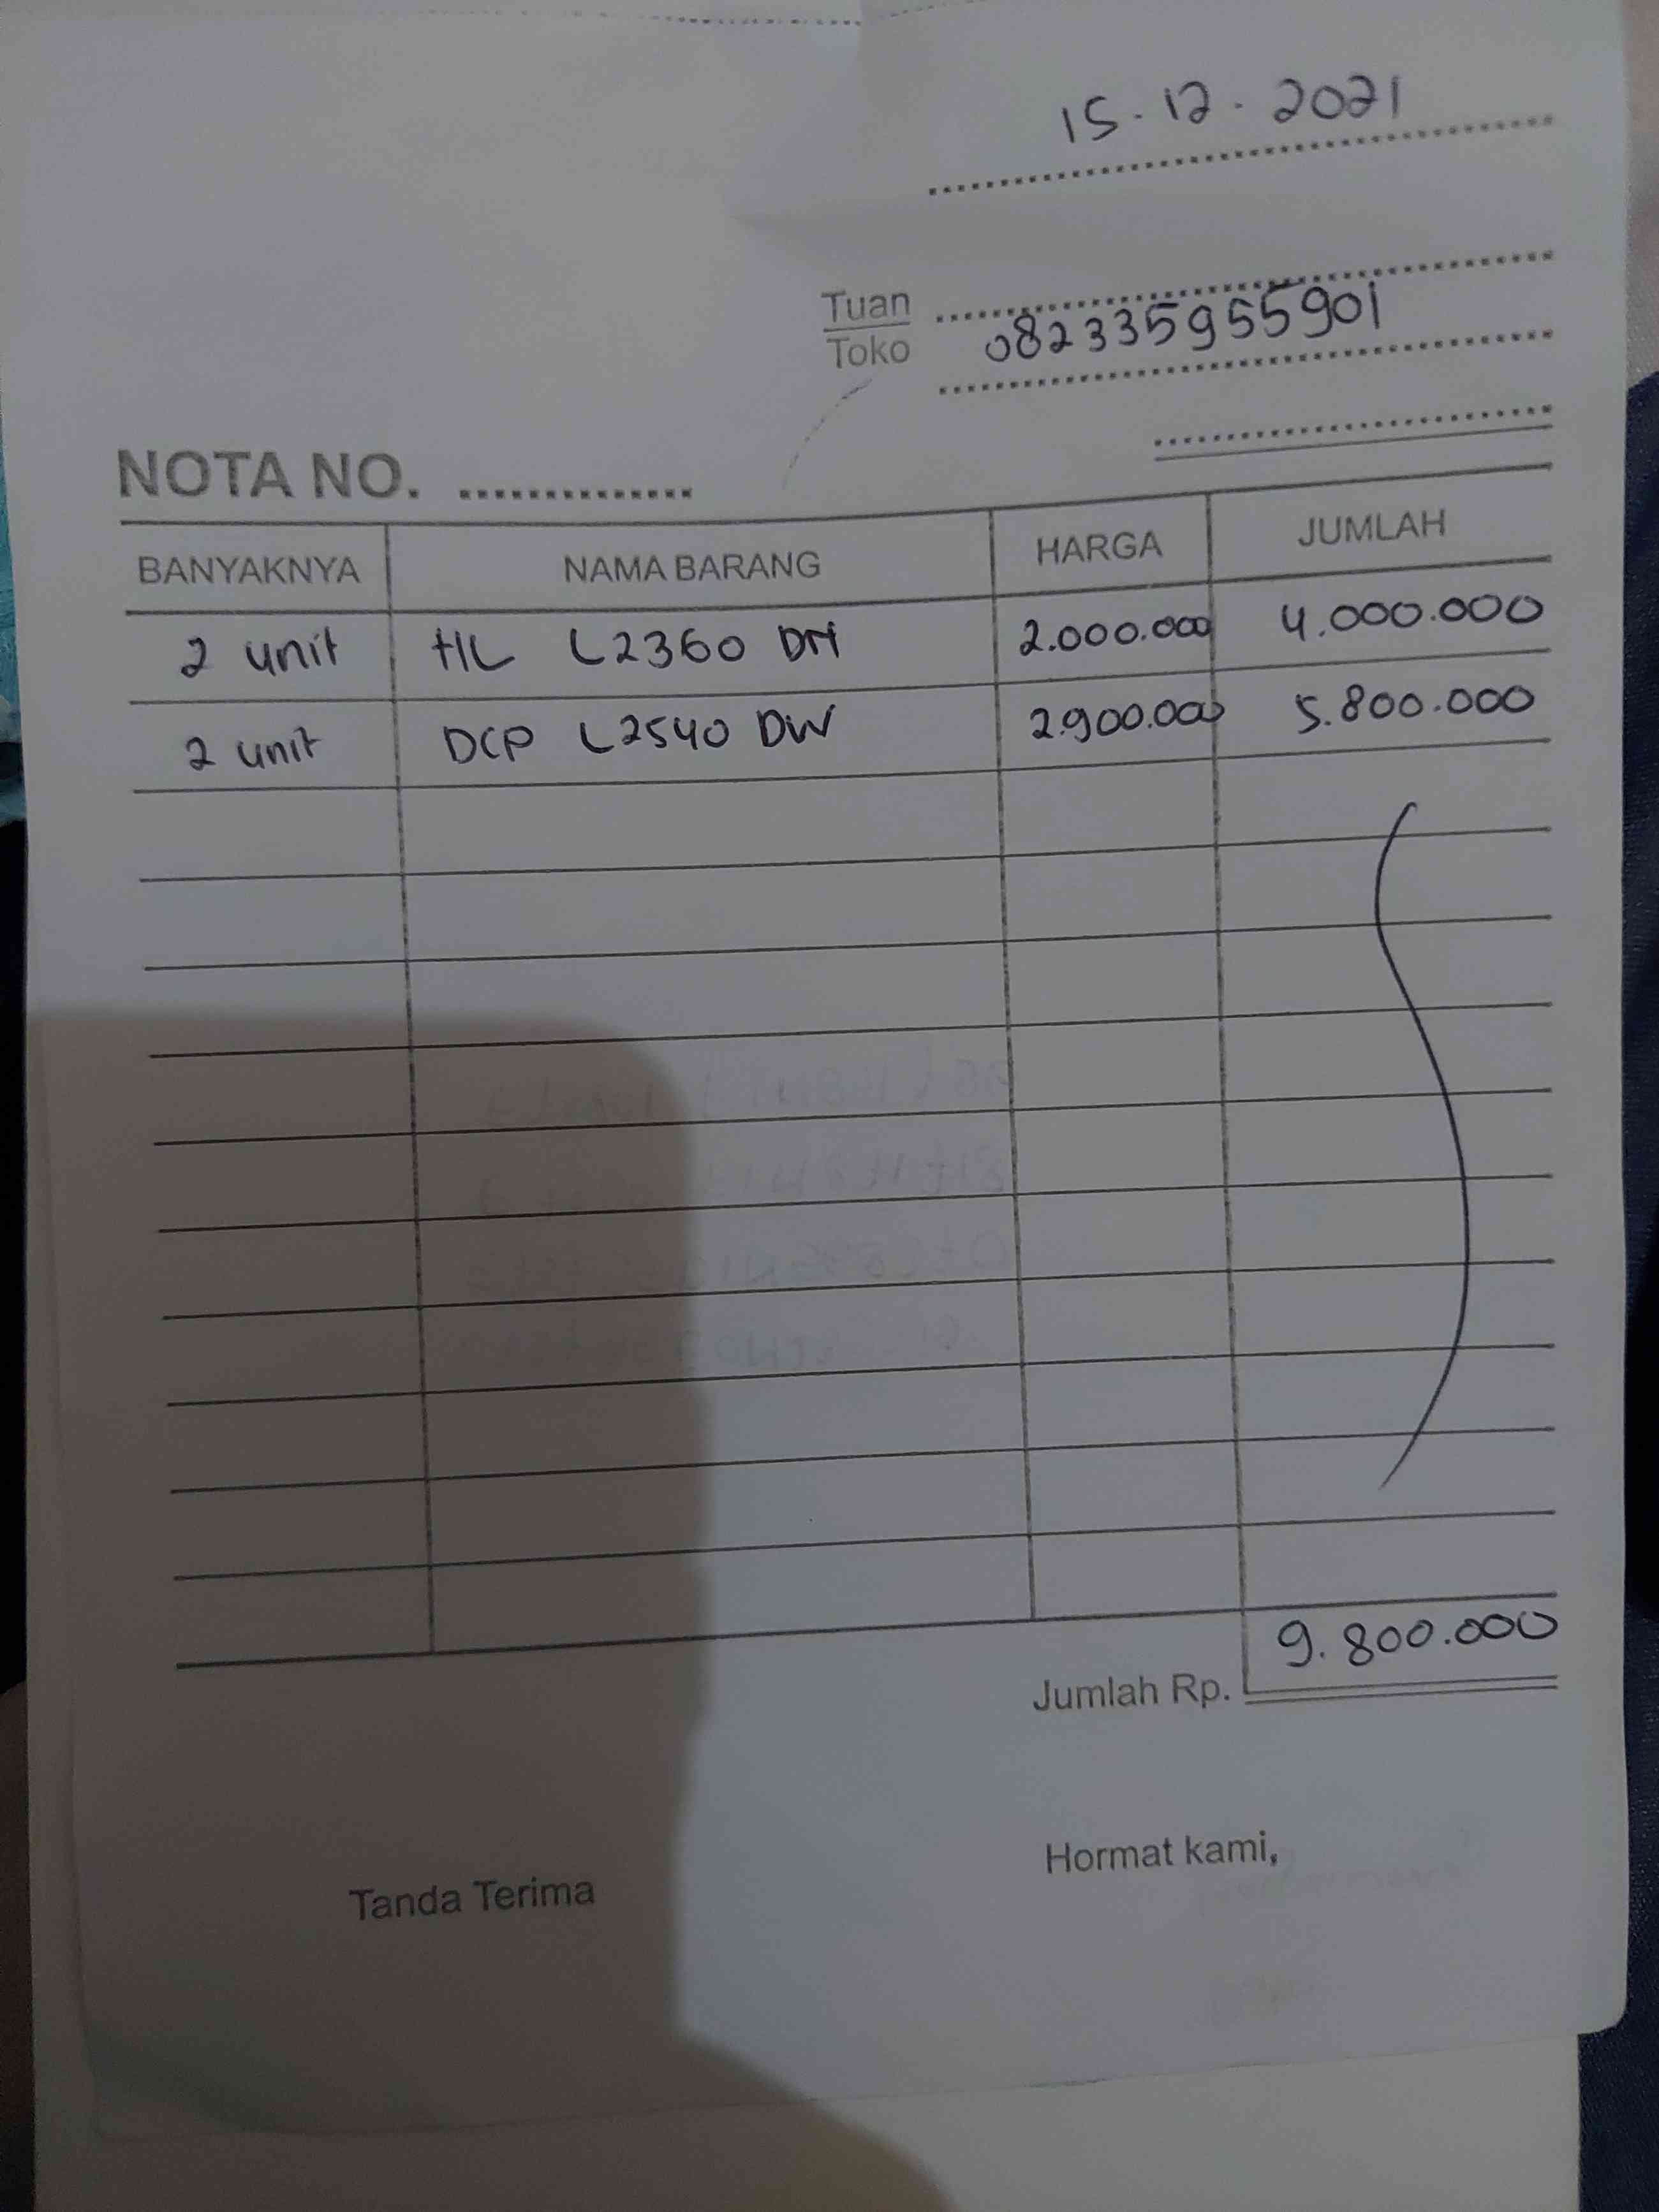 15-12-2021
Tuan
Toko
082335955901
NOTA NO. ..............
BANYAKNYA NAMA BARANG HARGA JUMLAH
2 unit HL L2360 DN 2.000.000 4.000.000
2 unit DCP L2540 DW 2.900.000 5.800.000
Jumlah Rp. 9.800.000
Tanda Terima Hormat kami,